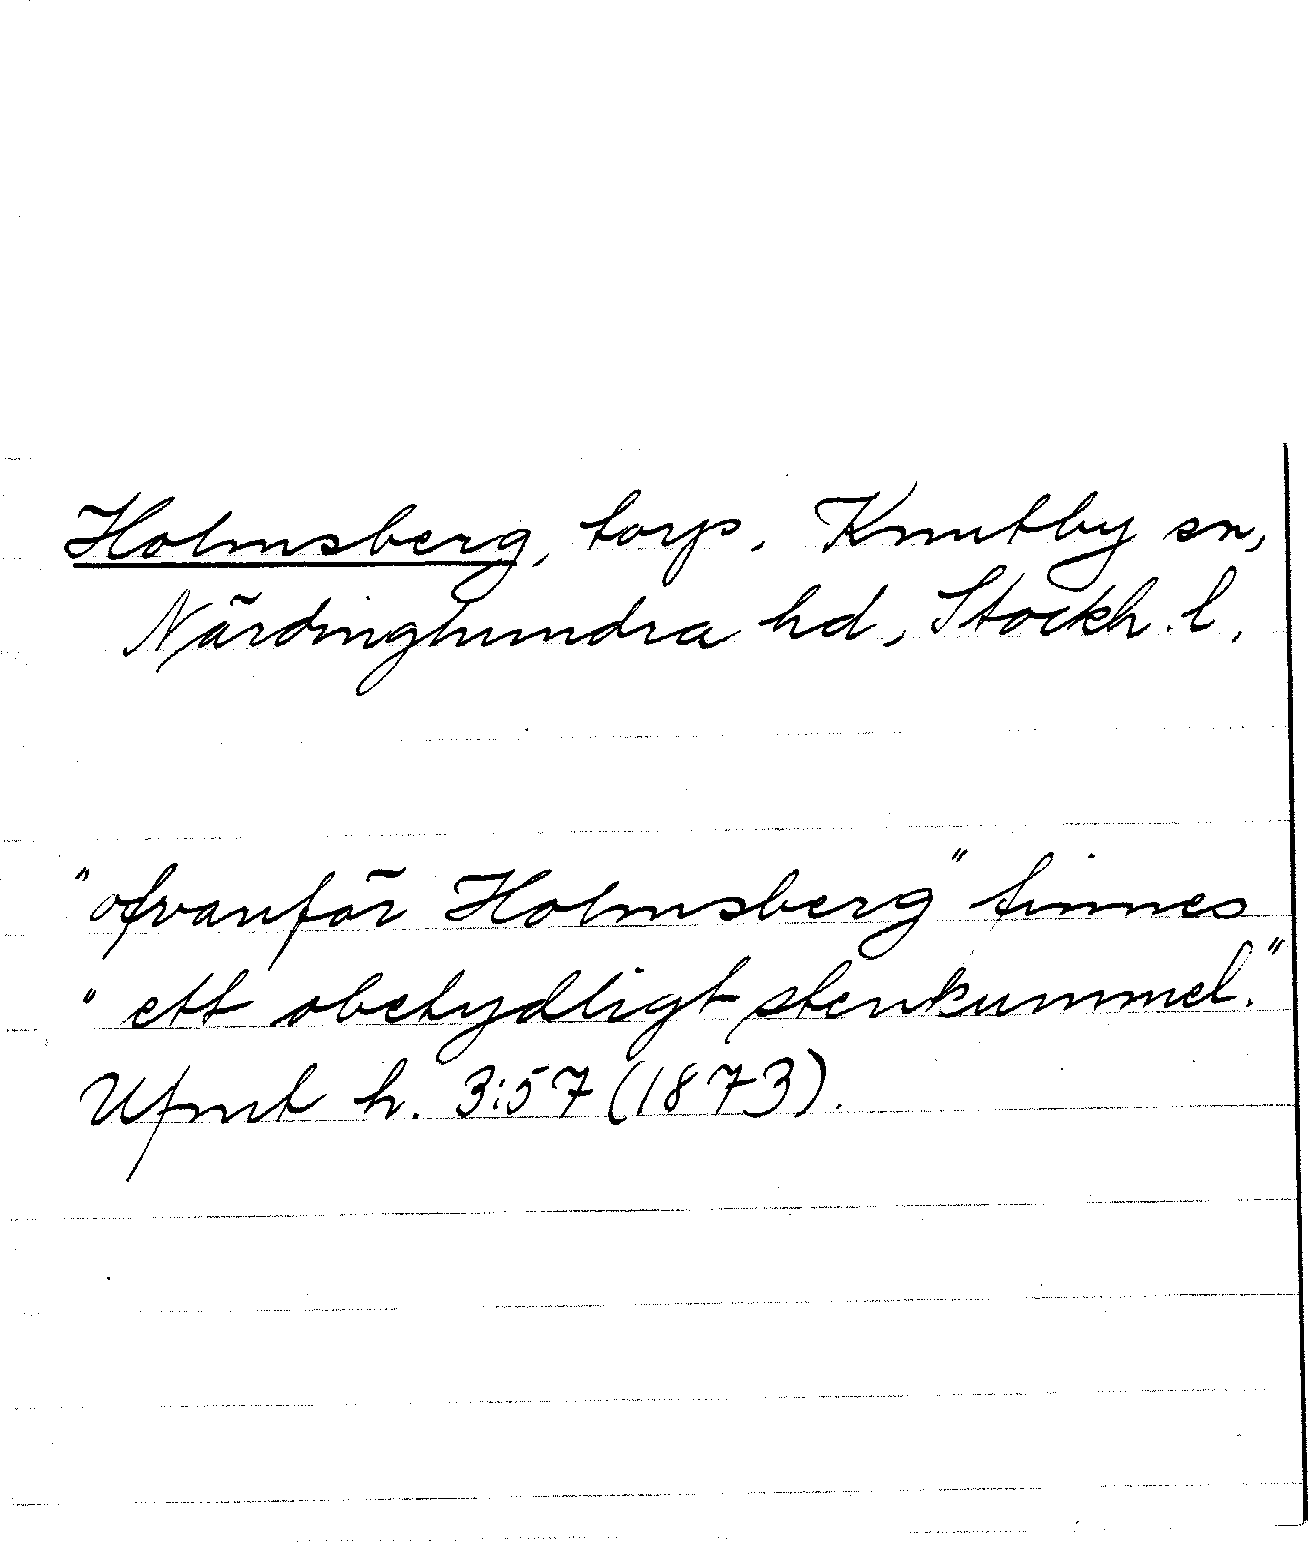 Holmsberg, torp, Knutby sn,
Närdinghundra hd, Stockh. l.
"ofvanför Holmsberg" finnes
"ett obetydligt stenkummel."
Ufmt h. 3:57 (1873).